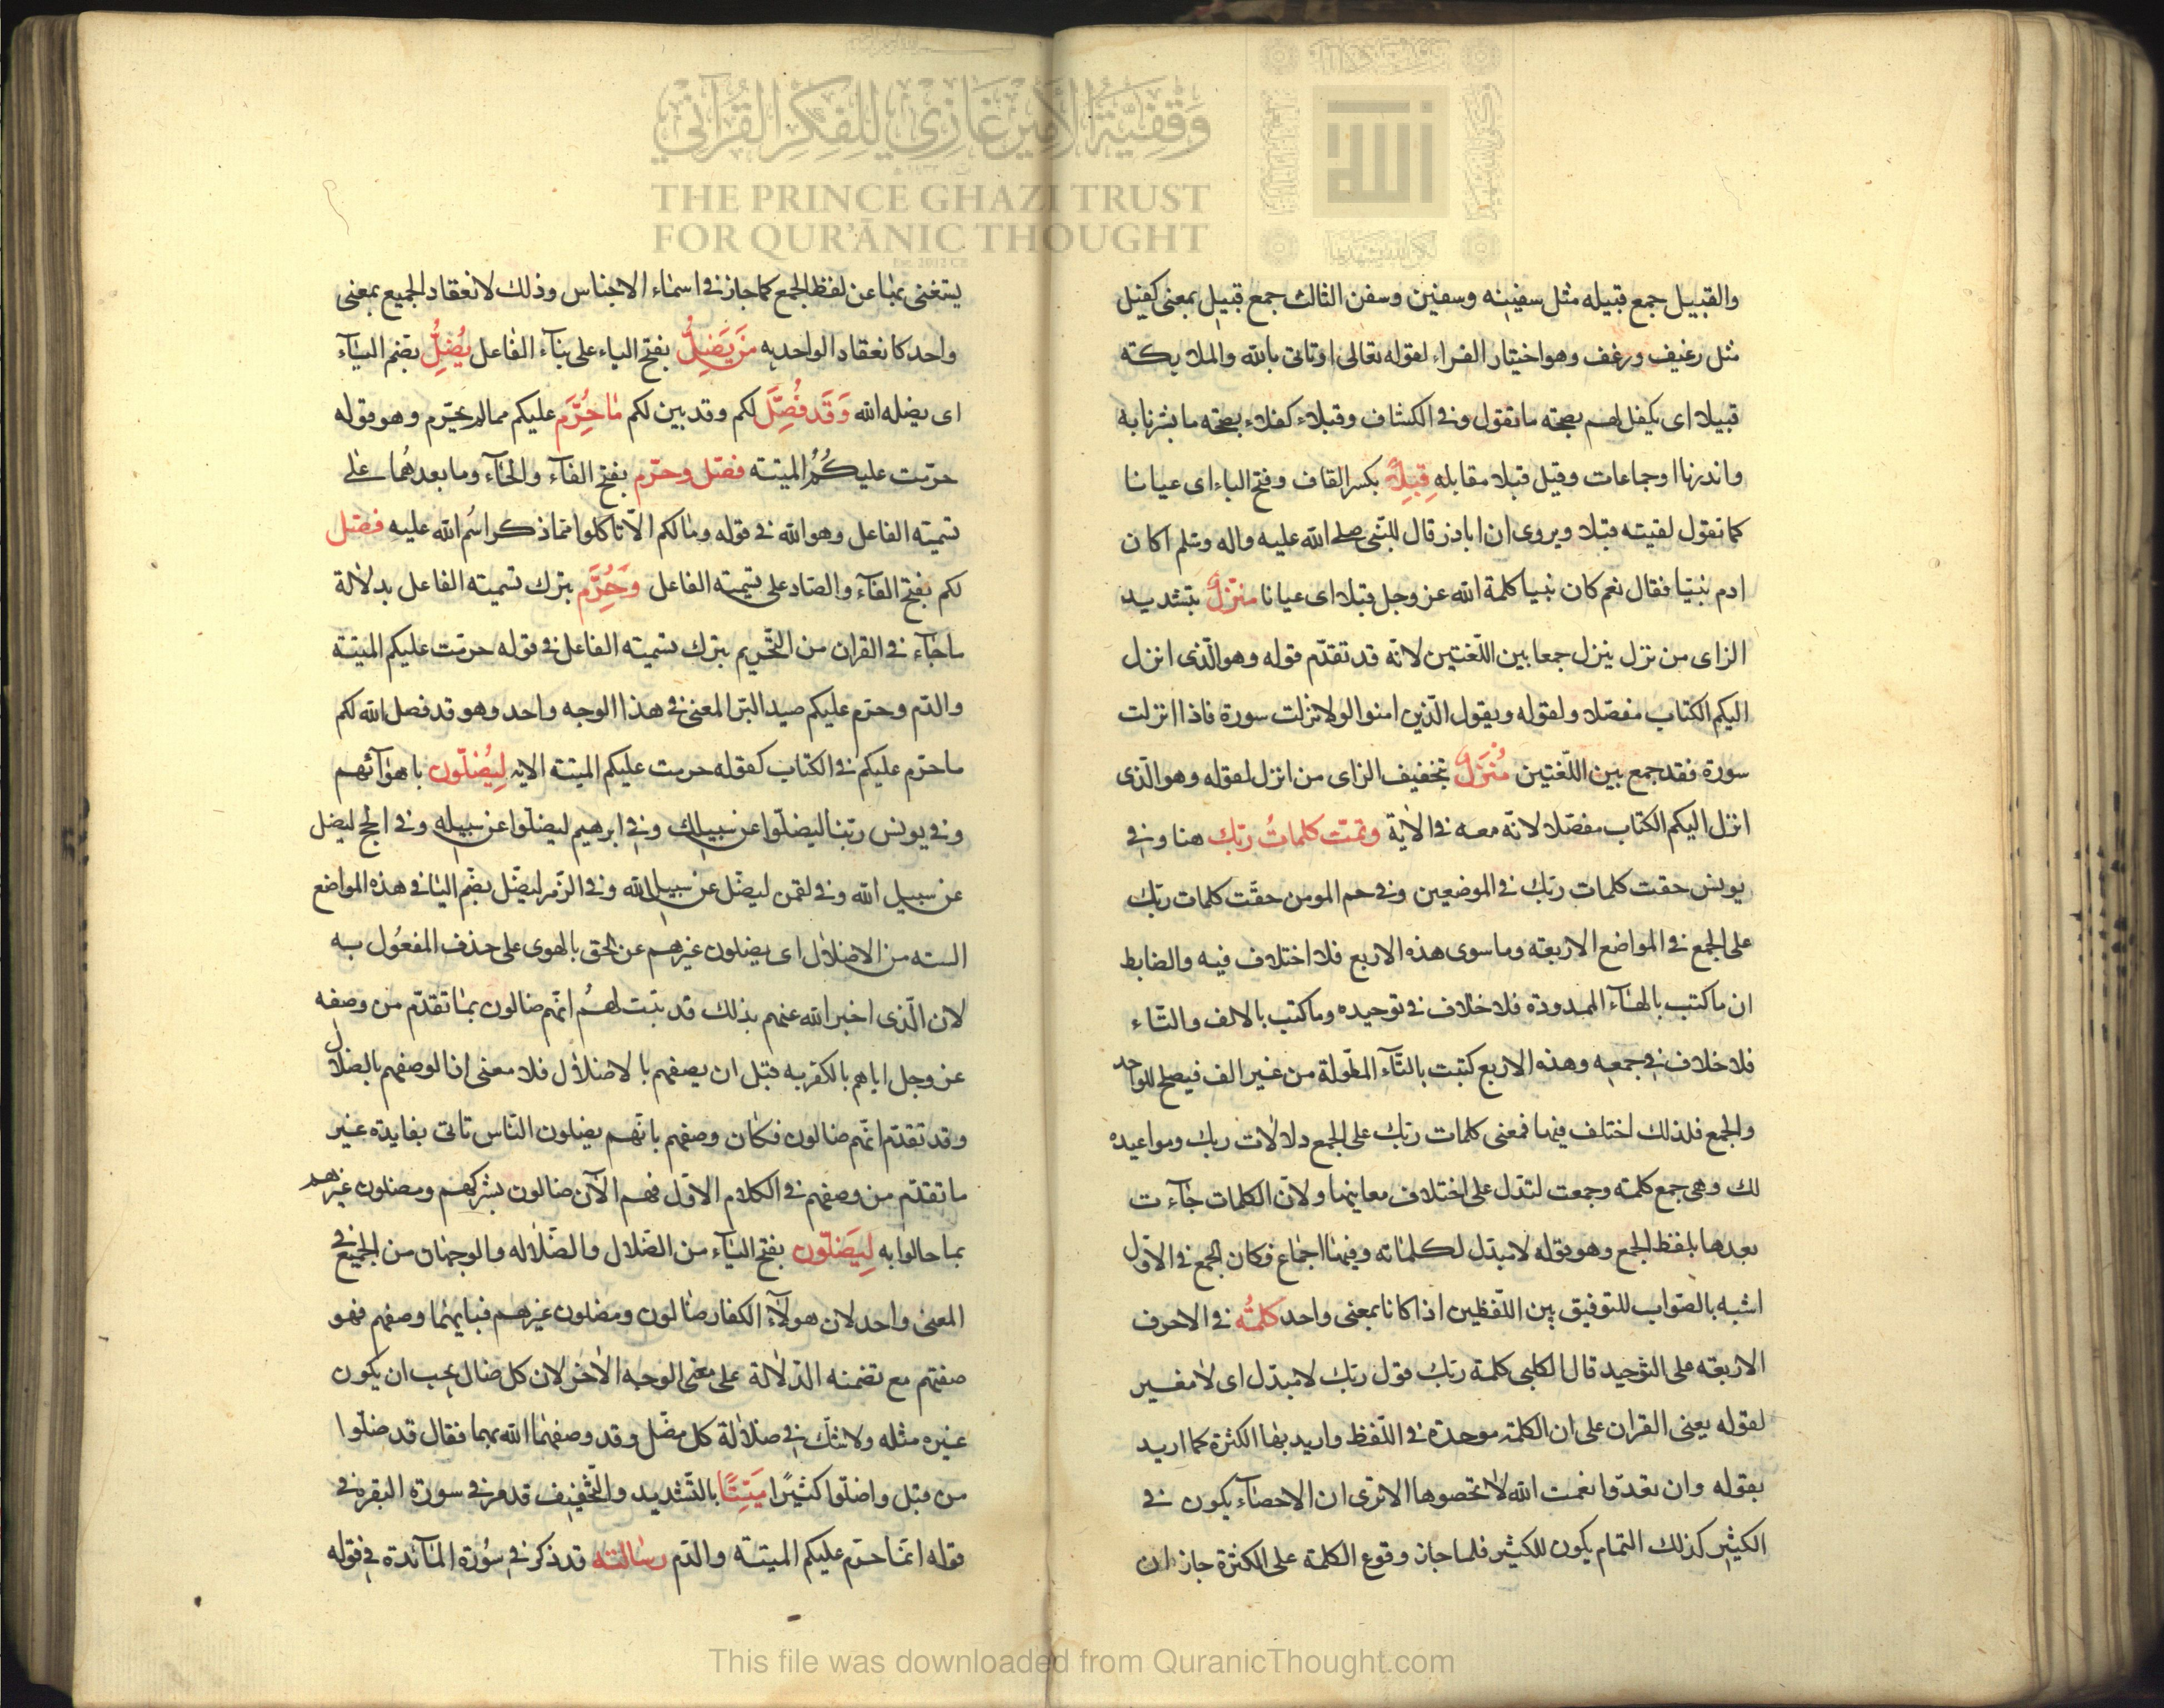 وَقْفِيَّةُ الأَمِيرْ غَازِي لِلْفِكْرِ القُرْآنِي
THE PRINCE GHAZI TRUST
FOR QUR'ĀNIC THOUGHT
والقبيل جمع قبيله مثل سفينه وسفين وسفن الثالث جمع قبيل بمعنى كفيل
مثل رغيف ورغف وهو اختيار الفراء لقوله تعالى اوتاتى بالله والملايكته
قبيلا اى يكفل لهم بصحته ما تقول وفى الكشاف وقبلاء كفلاء بصحته ما بشرنا به
وانذرنا اوجماعات وقيل قبلا مقابله قِبَلاً بكسر القاف وفتح الباء اى عيانا
كما تقول لقيته قبلا ويروى ان اباذر قال للنّبى صلى الله عليه واله وسلم اكان
ادم نبيّا فقال نعم كان نبيا كلمة الله عزوجل قبلا اى عيانا منزّل بتشديد
الزاى من نزل ينزل جمعا بين اللّغتين لانّه قد تقدّم قوله وهو الّذى انزل
اليكم الكتاب مفصّلا ولقوله ويقول الّذين امنوا لولا نزلت سورة فاذا انزلت
سورة فقد جمع بين اللّغتين مُنْزَل بتخفيف الزاى من انزل لقوله وهو الّذى
انزل اليكم الكتاب مفصّلا لانّه معه فى الاية وتمّت كلماتُ ربّك هنا وفى
يونس حقت كلمات ربّك فى الموضعين وفى حم المومن حقّت كلمات ربّك
على الجمع فى المواضع الاربعته وما سوى هذه الاربع فلا اختلاف فيه والضابط
ان ما كتب بالهاء الممدودة فلا خلاف فى توحيده وما كتب بالالف والتّاء
فلا خلاف فى جمعه وهذه الاربع كتبت بالتّاء المطّولة من غير الف فيصلح للواحد
والجمع فلذلك اختلف فيها فمعنى كلمات ربّك على الجمع دلالات ربك ومواعيده
لك وهى جمع كلمته وجمعت لتدّل على اختلاف معاينها ولانّ الكلمات جآءت
بعدها بلفظ الجمع وهو قوله لا مبدّل لكلماته وفيها اجماع فكان الجمع فى الاوّل
اشبه بالصّواب للتوفيق بين اللّفظين اذا كانا بمعنى واحد كلمتُه فى الاحرف
الاربعته على التوحيد قال الكلبى كلمة ربّك قول ربّك لا مبدّل اى لا مغير
لقوله يعنى القران على ان الكلمة موحدة فى اللّفظ واريد بها الكثرة كما اريد
بقوله وان تعدّوا نعمت الله لا تحصوها الا ترى ان الاحصآء يكون فى
الكثير كذلك التمام يكون للكثير فلما جاز وقوع الكلمة على الكثرة جاز ان
يستغنى بها عن لفظ الجمع كما جاز فى اسماء الاجناس وذلك لانعقاد الجميع بمعنى
واحد كانعقاد الواحد به مَنْ يَضِلُّ بفتح الياء على بنآء الفاعل يُضِلُّ بضم اليآء
اى يضله الله وَقَد فُصِّلَ لكم وقد بين لكم مَا حُرِّمَ عليكم مما لم يحّرم وهو قوله
حرّمت عليكُمُ الميتته فصّل وحرّم بفتح الفآء والحآء وما بعدهُما على
تسميته الفاعل وهو الله فى قوله ومالكم الّا تاكلوا ممّا ذكر اسُم الله عليه فصّل
لكم بفتح الفآء والصّاد على تسميته الفاعل وَحُرِّم بترك تسميته الفاعل بدلالة
ماجآء فى القران من التّحريم بترك تسميته الفاعل فى قوله حرّمت عليكم الميتة
والدّم وحرّم عليكم صيد البّر المعنى فى هذا الوجه واحد وهو قد فصل الله لكم
ما حرّم عليكم فى الكتاب كقوله حرمت عليكم الميتة الايه لِيُضلّون باهوآئهم
وفى يونس ربّنا ليضلّوا عن سبيلك وفى ابرهيم ليضلّوا عن سبيله وفى الحج ليضل
عن سبيل الله وفى لقمن ليضّل عن سبيل الله وفى الزّمر ليضّل بضّم اليا فى هذه المواضع
السته من الاضلال اى يضلون غيرهم عن الحق بالهوى على حذف المفعُول به
لان الّذى اخبر الله عنهم بذلك قد ثبت لهُم انّهم ضالون بما تقدّم من وصفه
عزوجل اياهم بالكفر به قبل ان يصفهم بالاضلال فلا معنى اذا لوصفهم بالضلال
وقد تقدّم انّهم ضالون فكان وصفهم بانّهم يضلون النّاس تاتى بفايدة غير
ما تقدّم من وصفهم فى الكلام الاوّل فهم الآن ضالون بشركهم ومضلون غيرهم
بما حالوا به لِيَضلّون بفتح اليآء من الضّلال والضّلاله والوجهان من الجميع فى
المعنى واحد لان هولآء الكفار ضالون ومضلون غيرهم فبايهما وصفهم فهو
صفتهم مع تضمنه الدّلالة على معنى الوجه الاخر لان كل ضال يجب ان يكون
غيره مثله ولا شك فى ضلالة كل مضّل وقد وصفهما الله بهما فقال قد ضلّوا
من قبل واضلّوا كثيرًا مَيّتًا بالتّشديد والتّخفيف قد مر فى سورة البقره فى
قوله انّما حرّم عليكم الميتة والدّم رسالته قد ذكر فى سُورة المآئدة فى قوله
This file was downloaded from QuranicThought.com